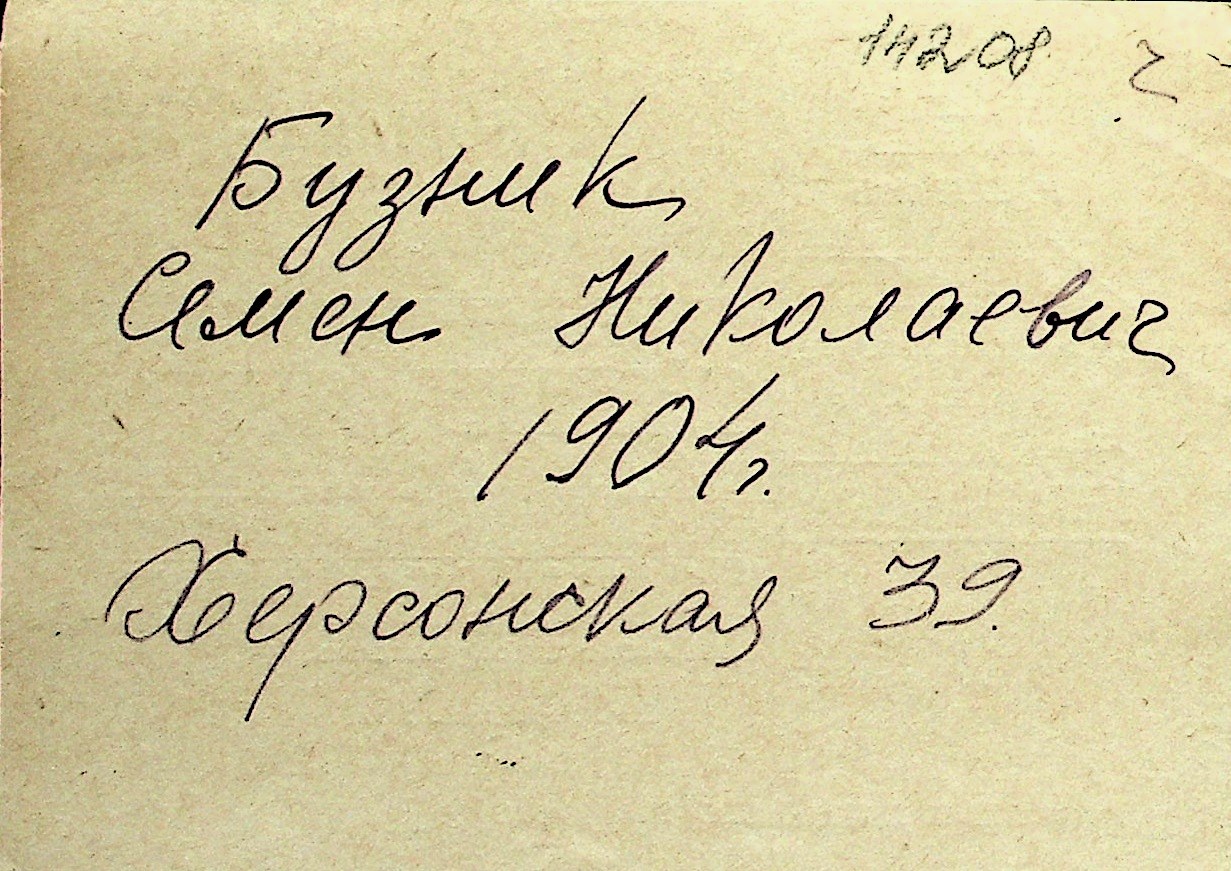 14208
Бузник
Семен Николаевич
1904г.
Херсонская 39.